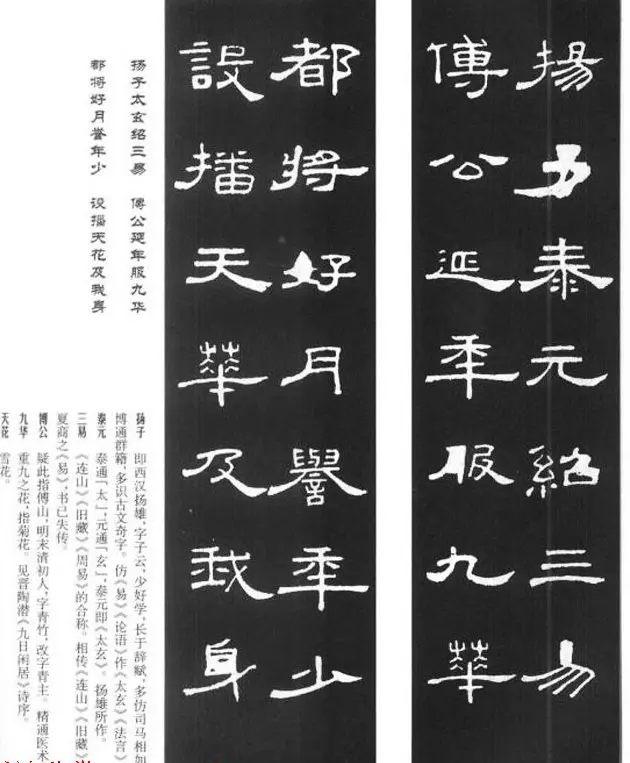 揚子泰元紹三易
傅公延年服九華
都將好月譽年少
設播天華及我身
扬子太玄绍三易　傅公延年服九华
都将好月誉年少　设播天花及我身
扬子　即西汉扬雄，字子云，少好学，长于辞赋，多仿司马相如
博通群籍，多识古文奇字。仿《易》《论语》作《太玄》《法言》
泰元　泰通「太」，元通「玄」，泰元即《太玄》。扬雄所作。
三易　《连山》《旧藏》《周易》的合称。相传《连山》《旧藏》
夏商之《易》，书已失传。
博公　疑此指傅山，明末清初人，字青竹，改字青主。精通医术
九华　重九之花，指菊花。见晋陶潜《九日闲居》诗序。
天花　雪花。